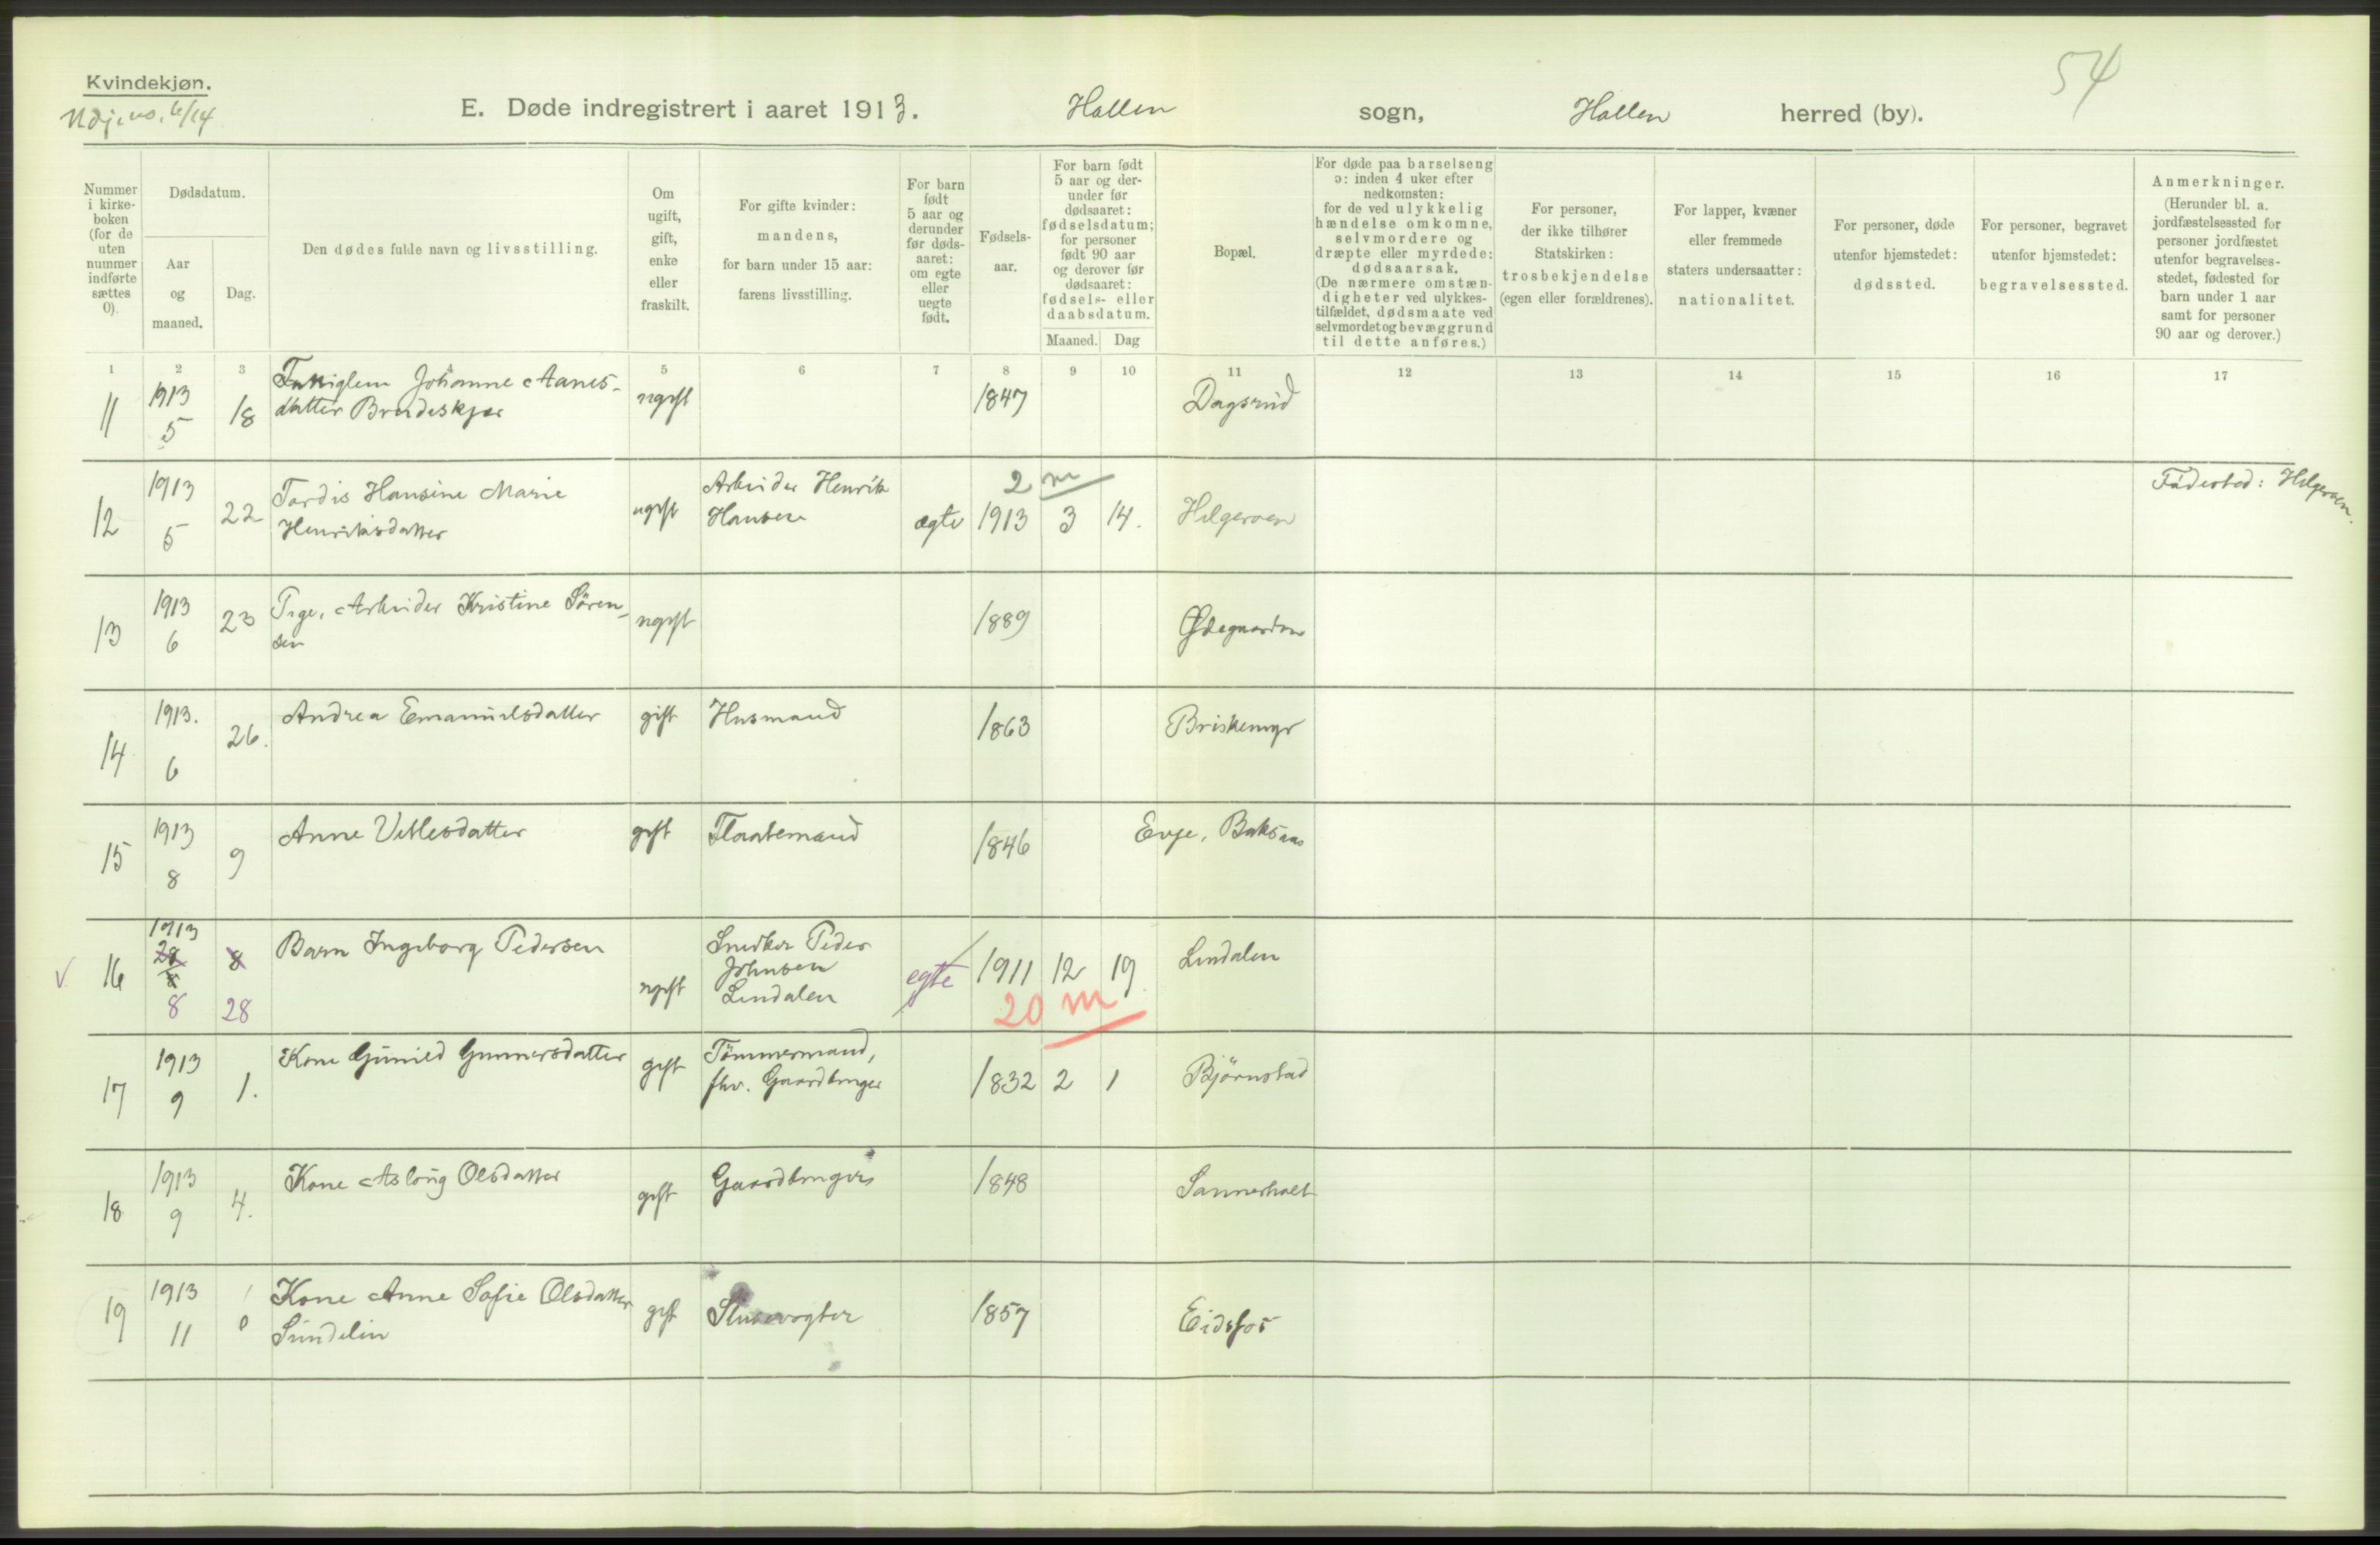 Kvindekjøn.
6/14
54
E. Døde indregistrert i aaret 1913. Hollen sogn, Hollen herred (by).
Nummer i kirkeboken (for de uten nummer indførte sættes 0).
Dødsdatum.
Aar og maaned.
Dag.
Den dødes fulde navn og livsstilling.
Om ugift, gift, enke eller fraskilt.
For gifte kvinder: mandens, for barn under 15 aar: farens livsstilling.
For barn født 5 aar og derunder før dødsaaret: om egte eller uegte født.
Fødselsaar.
For barn født 5 aar og derunder før dødsaaret: fødselsdatum; for personer født 90 aar og derover før dødsaaret: fødsels- eller daabsdatum.
Maaned. Dag
Bopæl.
For døde paa barselseng ɔ: inden 4 uker efter nedkomsten: for de ved ulykkelig hændelse omkomne, selvmordere og dræpte eller myrdede: dødsaarsak. (De nærmere omstændigheter ved ulykkestilfældet, dødsmaate ved selvmordet og bevæggrund til dette anføres.)
For personer, der ikke tilhører Statskirken: trosbekjendelse (egen eller forældrenes).
For lapper, kvæner eller fremmede staters undersaatter: nationalitet.
For personer, døde utenfor hjemstedet: dødssted.
For personer, begravet utenfor hjemstedet: begravelsessted.
Anmerkninger. (Herunder bl. a. jordfæstelsessted for personer jordfæstet utenfor begravelsesstedet, fødested for barn under 1 aar samt for personer 90 aar og derover.)
1 2 3 5 6 7 8 9 10 11 12 13 14 15 16 17
11 1913 5 18 Johanne Aanesdatter ugift 1847 Dagsrud
12 1913 5 22 Tordis Hansine Marie Henriksdatter ugift Arbeider Henrik Hansen ægte 1913 3 14. Helgeroen Födested: Helgeroen.
2 m
13 1913 6 23 Pige, Arbeider Kristine Sörensen ugift 1889 Ødegaarden
14 1913. 6 26. Andrea Emanuelsdatter gift Husmand 1863 Briskemyr
15 1913 8 9 Anne Vetlesdatter gift Flaatemand 1846 Evje, Baksaas
V 16 1913 28 8 8 Barn Ingeborg Pedersen ugift Snedker Peder Johnsen Lindalen egte 1911 12 19. Lindalen
8 28
20 m
17 1913 9 1. Kone Gunild Gunnersdatter gift Tömmermand, fhv. Gaardbruger 1832 2 1 Björnstad
18 1913 9 4. Kone Aslaug Olsdatter gift Gaardbruger 1848 Sannerholt
19 1913 11 Kone Anne Sofie Olsdatter Sundelin gift Slusevogter 1857 Eidsfos